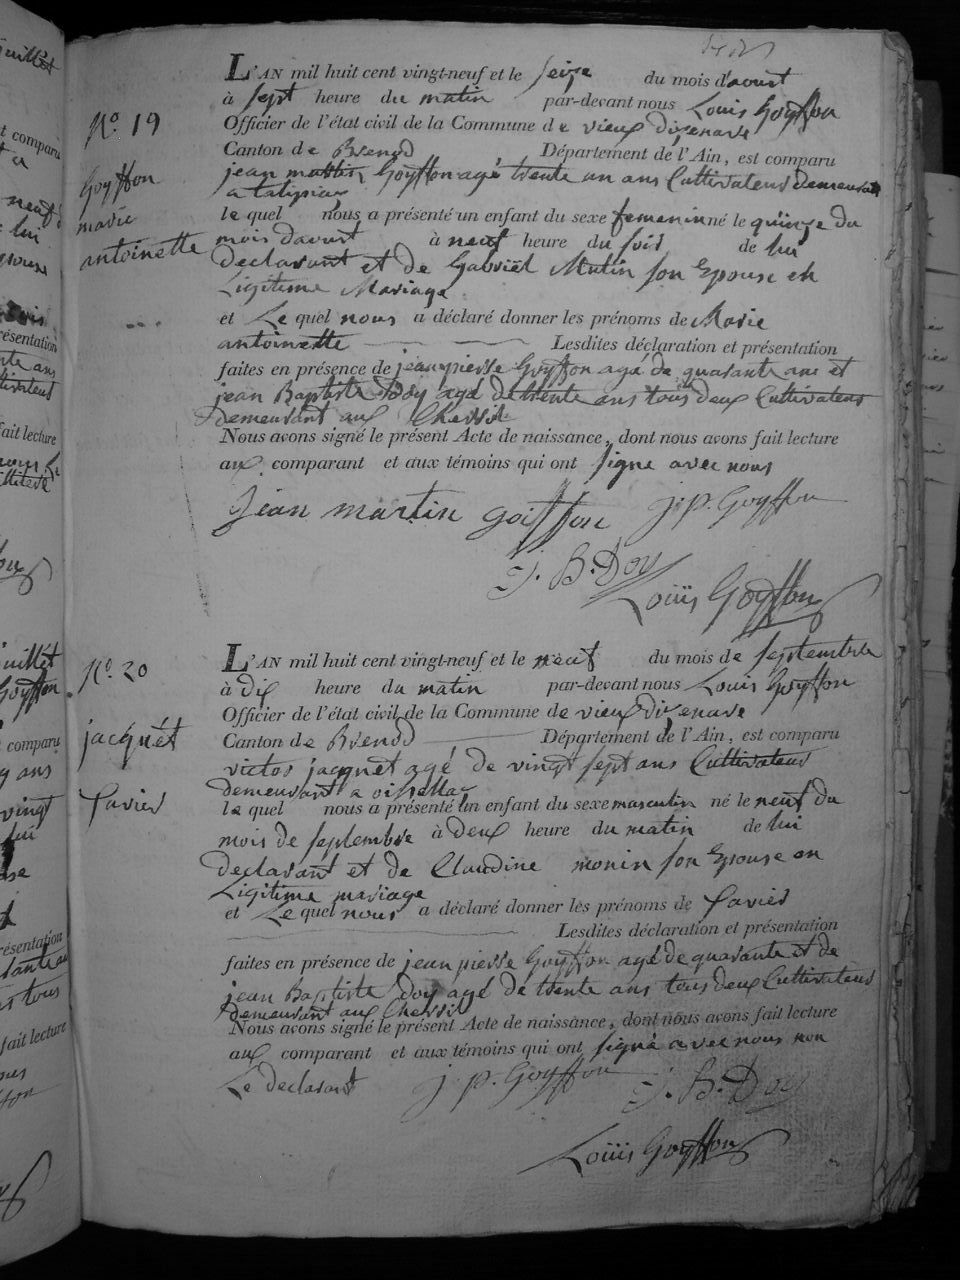 No 19
Goyffon
marie
antoinette
L'AN mil huit cent vingt-neuf et le seize du mois d'aoust
à sept heure du matin par-devant nous Louis Goyffon
Officier de l'état civil de la Commune de vieux disenave
Canton de Brenod Département de l'Ain, est comparu
jean martin Goyffon agé trente un ans Cultivateur demeurant
a talipiaz
le quel nous a présenté un enfant du sexe femenin né le quinze du
mois daoust à neuf heure du soir de lui
declarant et de Gabriël Mutin son Epouse en
Ligitime Mariage
et Le quel nous a déclaré donner les prénoms de Marie
antoinette Lesdites déclaration et présentation
faites en présence de jean pierre Goyffon agé de quarante ans et
jean Baptiste Doy agé de trente ans tous deux Cultivateurs
Demeurant aux Chessil
Nous avons signé le présent Acte de naissance, dont nous avons fait lecture
aux comparant et aux témoins qui ont signe avec nous
Jean martin goiffon j. p. Goyffon
J. B. Doy
Louïs Goyffon
No 20
jacquét
Xavier
L'AN mil huit cent vingt-neuf et le neuf du mois de septembre
à dix heure du matin par-devant nous Louis Goyffon
Officier de l'état civil de la Commune de vieux disenave
Canton de Brenod Département de l'Ain, est comparu
victor jacquet agé de vingt sept ans Cultivateur
Demeurant a oissellaz
le quel nous a présenté un enfant du sexe masculin né le neuf du
mois de septembre à deux heure du matin de lui
declarant et de Claudine monin son Epouse en
Ligitime mariage
et Le quel nous a déclaré donner les prénoms de Xavier
Lesdites déclaration et présentation
faites en présence de jean pierre Goyffon agé de quarante et de
jean Baptiste Doy agé de trente ans tous deux Cultivateurs
Demeurant aux Chessil
Nous avons signé le présent Acte de naissance, dont nous avons fait lecture
aux comparant et aux témoins qui ont signé avec nous non
Le declarant j. p. Goyffon J. B. Doy
Louïs Goyffon